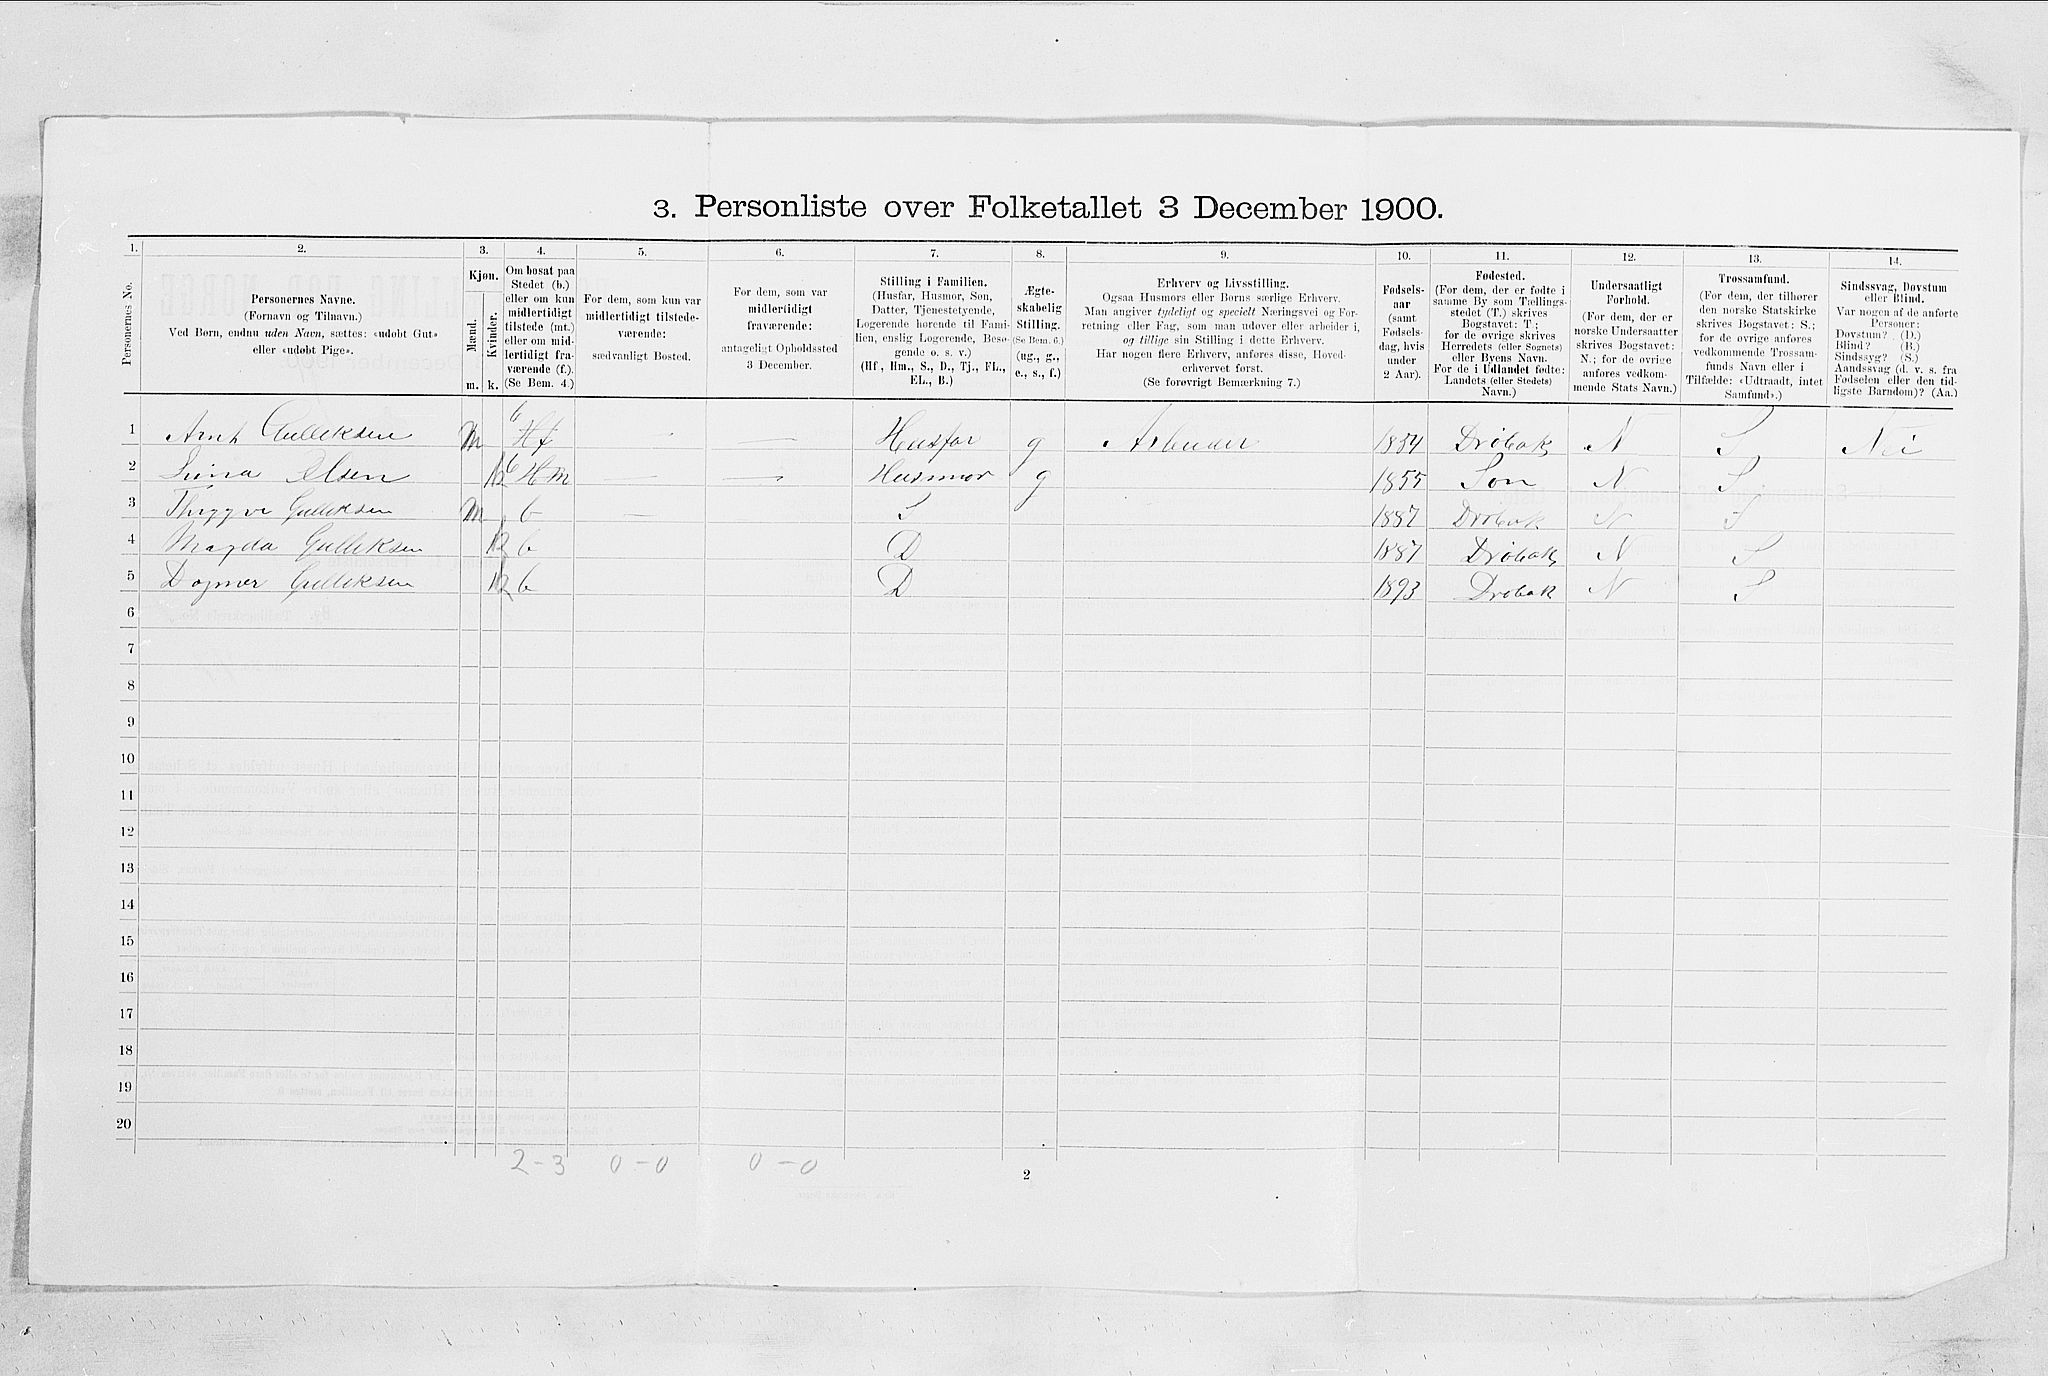 3. Personliste over Folketallet 3 December 1900.
1. 2. 3. 4. 5. 6. 7. 8. 9. 10. 11. 12. 13. 14.
Personernes No.
Personernes Navne.
(Fornavn og Tilnavn.)
Ved Børn, endnu uden Navn, sættes: «udøbt Gut»
eller «udøbt Pige».
Kjøn.
Mænd.
Kvinder.
m. k.
Om bosat paa
Stedet (b.)
eller om kun
midlertidigt
tilstede (mt.)
eller om mid-
lertidigt fra-
værende (f.).
(Se Bem. 4.)
For dem, som kun var
midlertidigt tilstede-
værende:
sædvanligt Bosted.
For dem, som var
midlertidigt
fraværende:
antageligt Opholdssted
3 December.
Stilling i Familien.
(Husfar, Husmor, Søn,
Datter, Tjenestetyende,
Logerende hørende til Fami-
lien, enslig Logerende, Besø-
gende o. s. v.)
(Hf, Hm., S., D., Tj., FL.,
EL., B.)
Ægte-
skabelig
Stilling.
(Se Bem. 6.)
(ug., g.,
e., s., f.)
Erhverv og Livsstilling.
Ogsaa Husmors eller Børns særlige Erhverv.
Man angiver tydeligt og specielt Næringsvei og For-
retning eller Fag, som man udøver eller arbeider i,
og tillige sin Stilling i dette Erhverv.
Har nogen flere Erhverv, anføres disse, Hoved-
erhvervet først.
(Se forøvrigt Bemærkning 7.)
Fødsels-
aar
(samt
Fødsels-
dag, hvis
under
2 Aar).
Fødested.
(For dem, der er fødte i
samme By som Tællings-
stedet (T.) skrives
Bogstavet: T.;
for de øvrige skrives
Herredets (eller Sognets)
eller Byens Navn.
For de i Udlandet fødte:
Landets (eller Stedets)
Navn.)
Undersaatligt
Forhold.
(For dem, der er
norske Undersaatter
skrives Bogstavet:
N.; for de øvrige
anføres vedkom-
mende Stats Navn.)
Trossamfund.
(For dem, der tilhører
den norske Statskirke
skrives Bogstavet: S.;
for de øvrige anføres
vedkommende Trossam-
funds Navn eller i
Tilfælde: «Udtraadt, intet
Samfund».)
Sindssvag, Døvstum
eller Blind.
Var nogen af de anførte
Personer:
Døvstum? (D.)
Blind? (B.)
Sindssyg? (S.)
Aandssvag (d. v. s. fra
Fødselen eller den tid-
ligste Barndom)? (Aa.)
1 Arnt Gulleksen M b Hf — — Husfar g Arbeider 1854 Drøbak N S Nei
2 Lina Olsen K b Hm — — Husmor g 1855 Son N S
3 Thrygve Gulleksen M b — S 1887 Drøbak N S
4 Magda Gulleksen K b D 1887 Drøbak N S
5 Dagmar Gulleksen K b D 1893 Drøbak N S
6
7
8
9
10
11
12
13
14
15
16
17
18
19
20
2-3 0-0 0-0
2